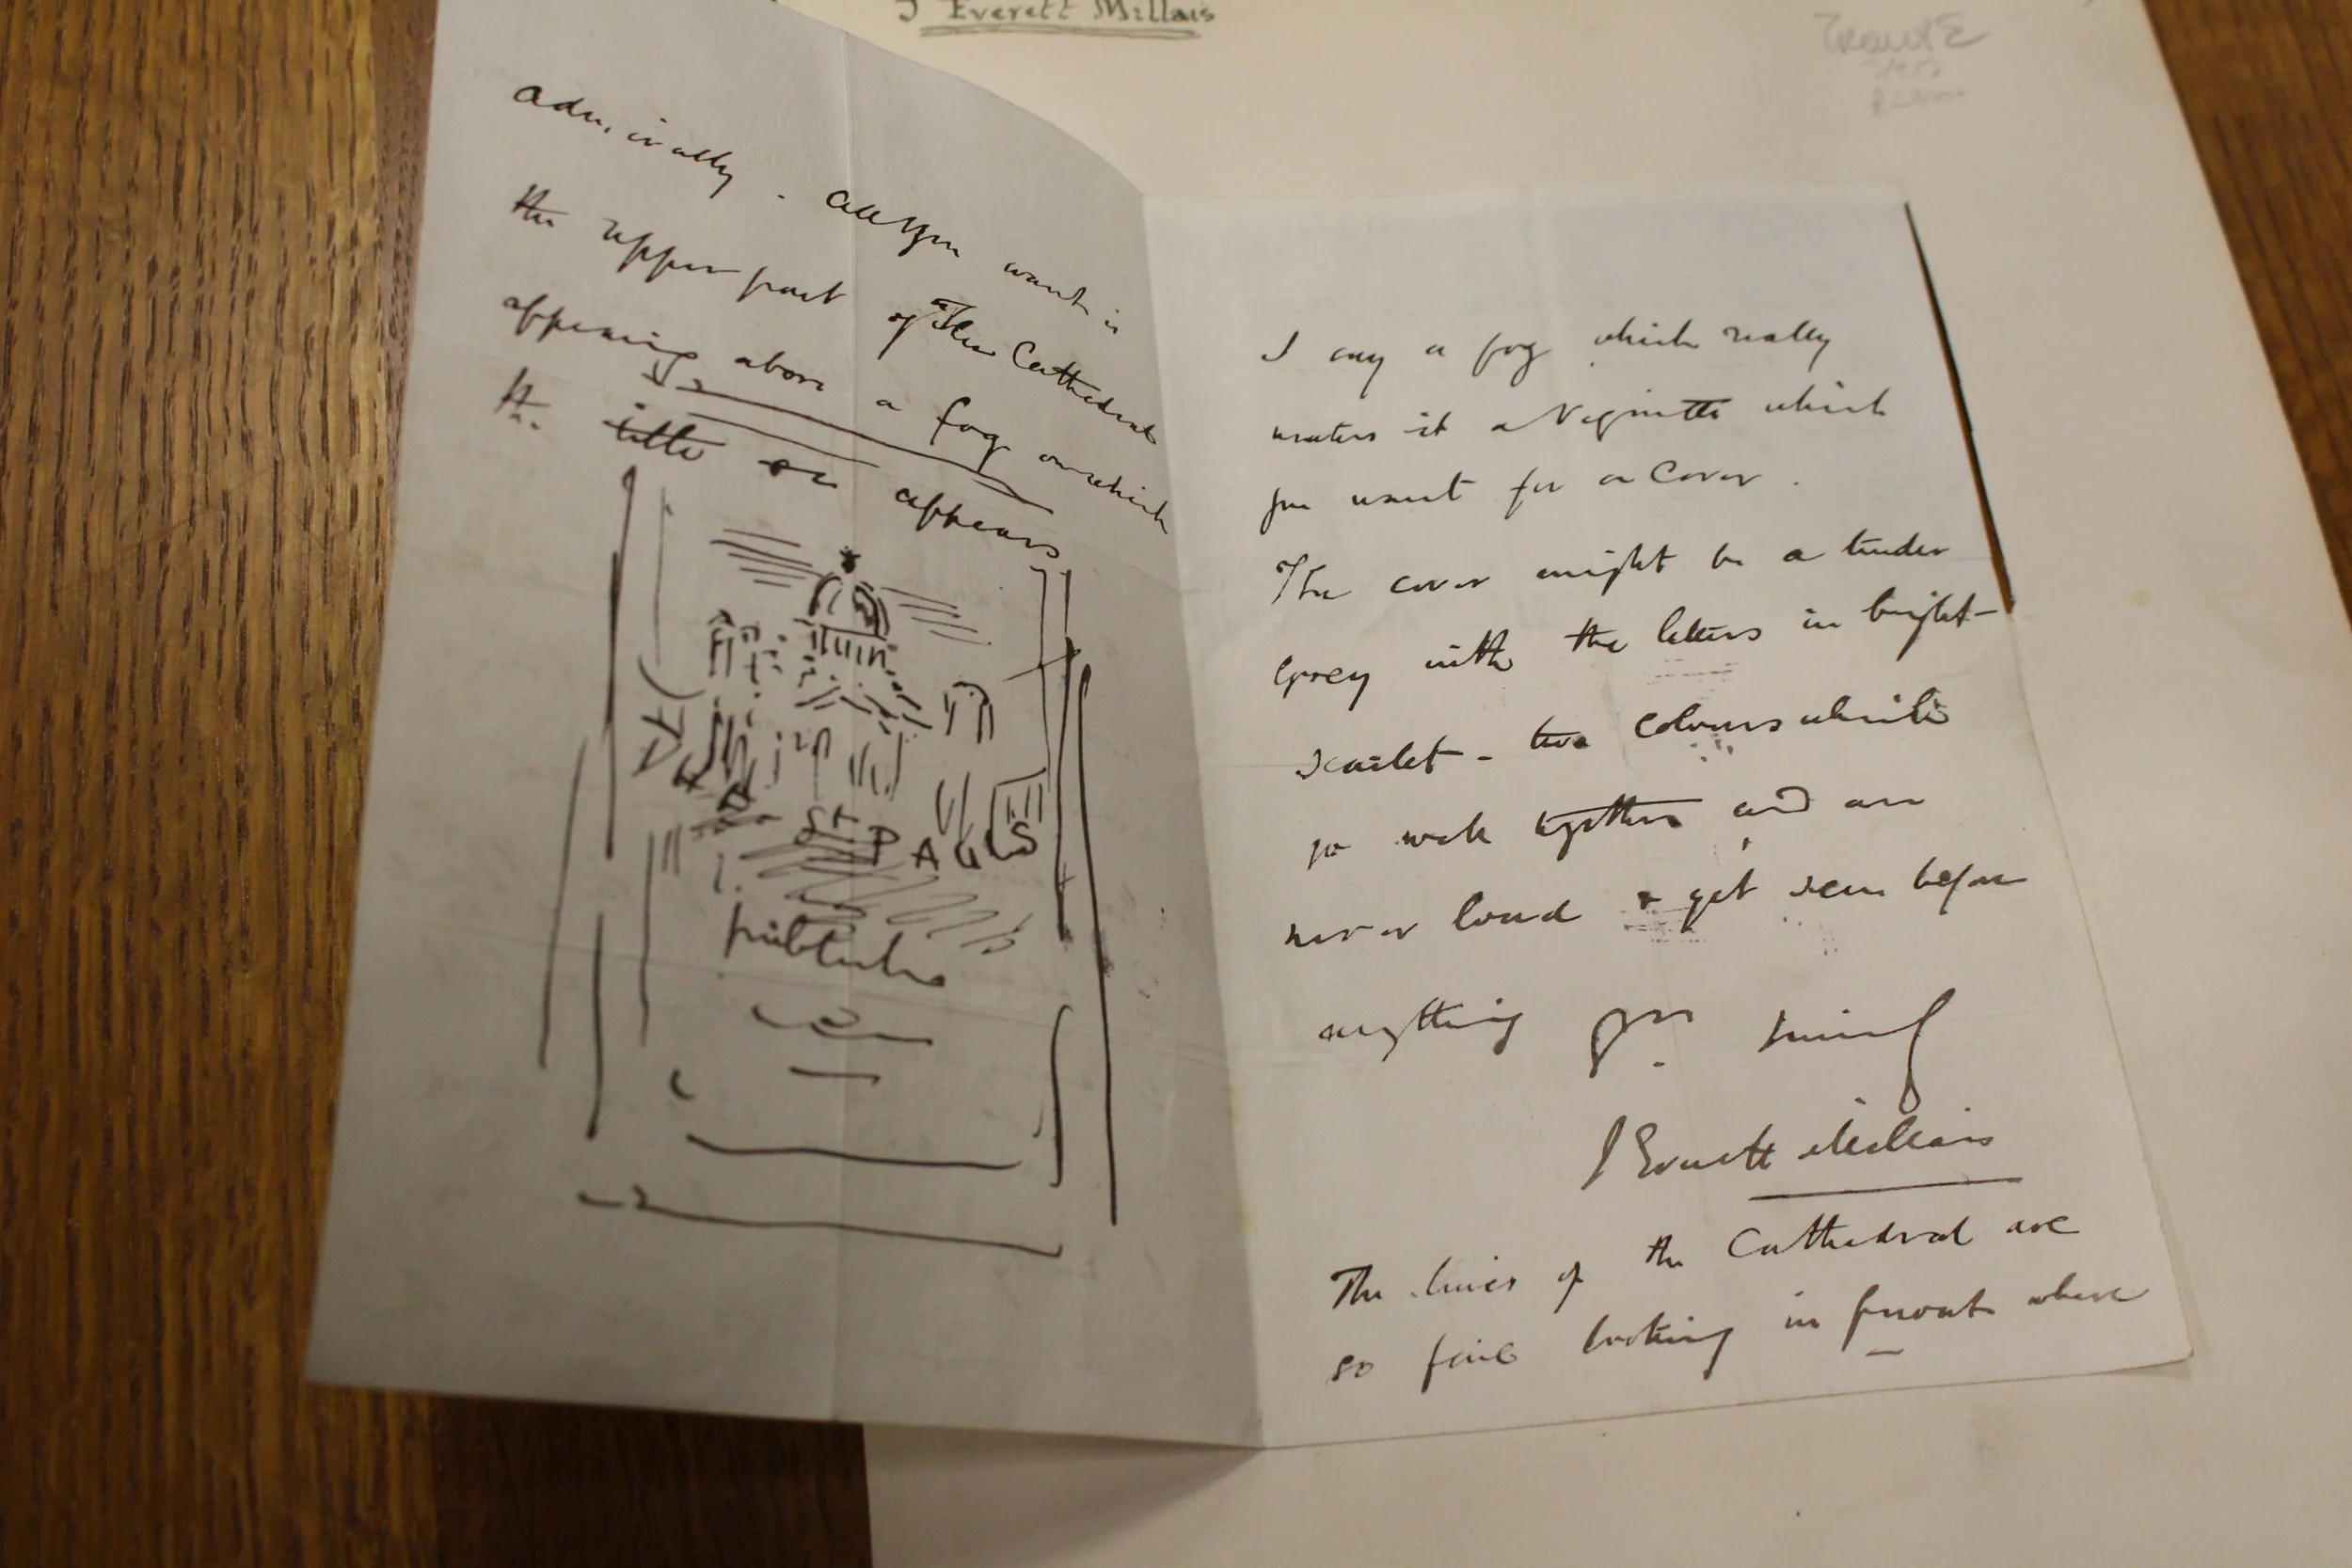 J Everett Millais
admirally. All you want is
the upper part of the Cathedral
appearing above a fog on which
the title appears
THE
St PAULS
I say a fog which really
makes it a Vignette which
you want for a Cover.
The cover might be a tender
Grey with the letters in bright
scarlet - two colours which
go well together and are
never loud & get seen before
anything
J Everett Millais
The lines of the Cathedral are
so fine looking in front where